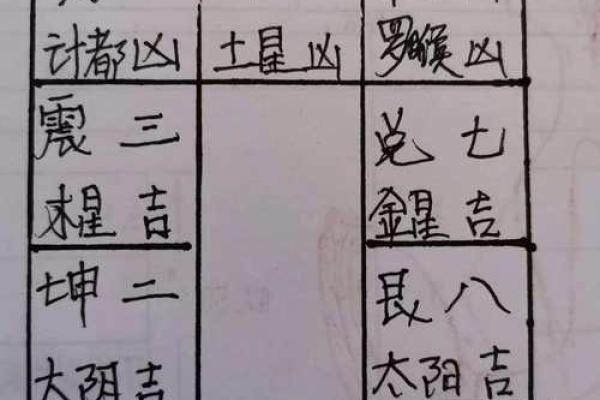 计都凶 土星凶 罗睺凶
震三 兑七
木星吉 金星吉
坤二 艮八
太阴吉 太阳吉